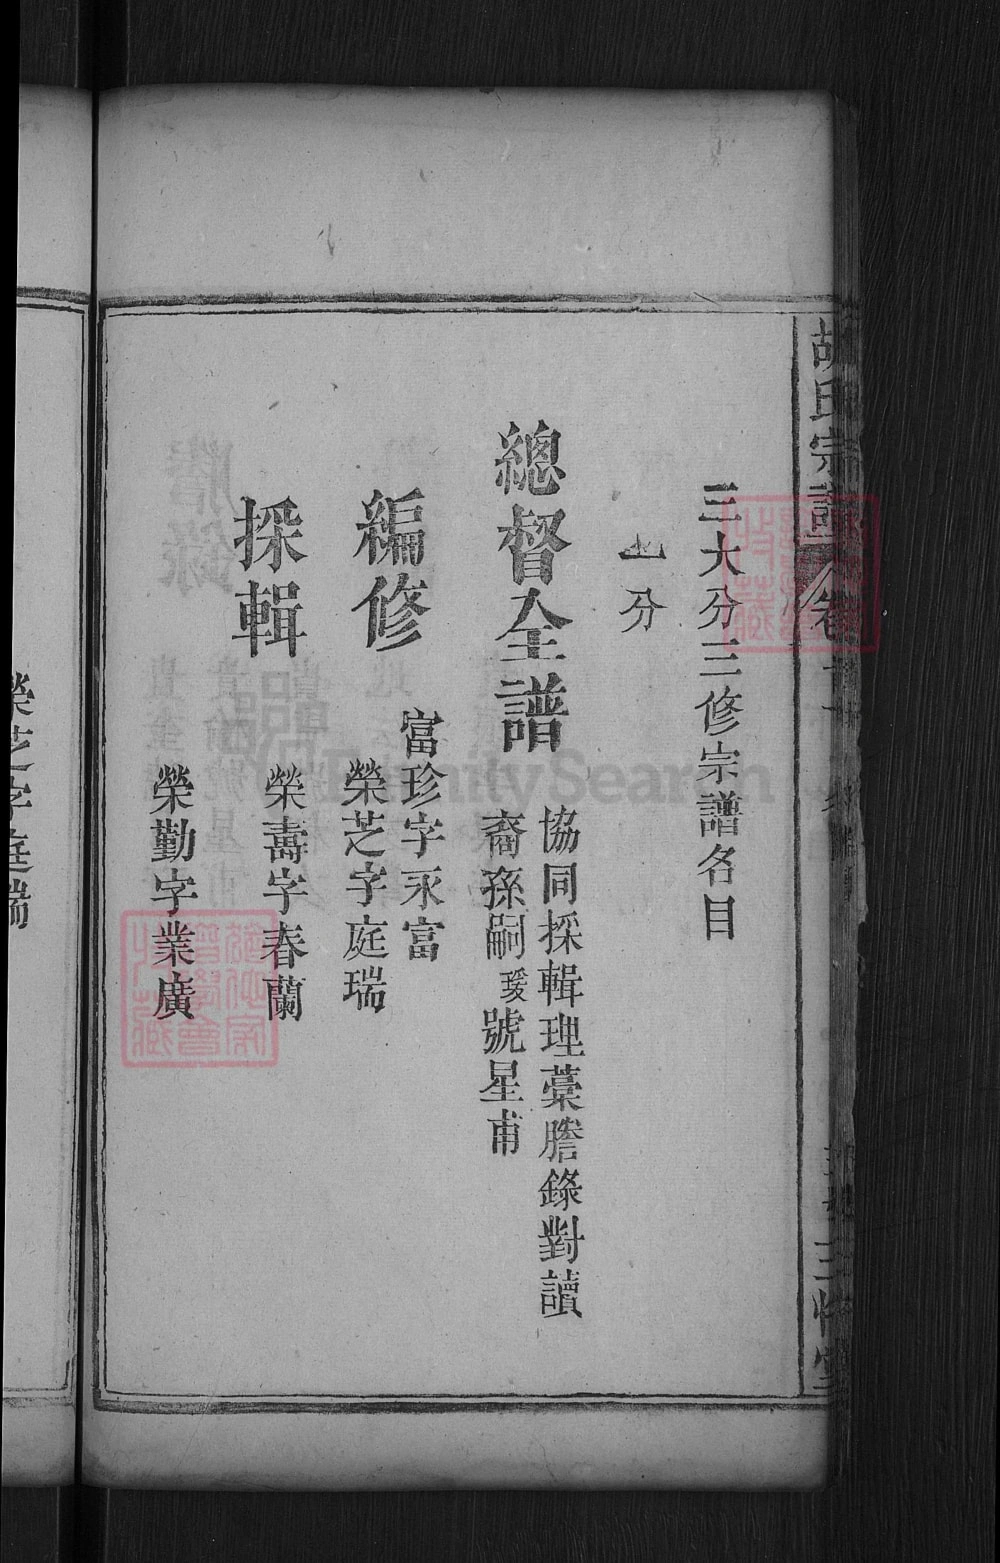 胡氏宗譜
三大分三修宗譜各目
分
總督全譜
協同採輯理藁謄錄對讀
裔孫嗣瑗號星甫
編修
富珍字永富
榮芝字庭瑞
採輯
榮壽字春蘭
榮勤字業廣
榮芝字庭瑞
FamilySearch